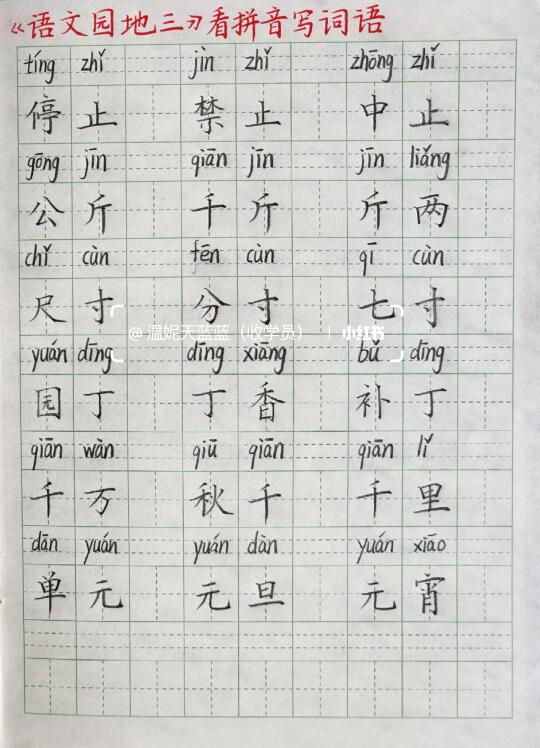 《语文园地三》看拼音写词语
tíng zhǐ jìn zhǐ zhōng zhǐ
停止 禁止 中止
gōng jīn qiān jīn jīn liǎng
公斤 千斤 斤两
chǐ cùn fēn cùn qī cùn
尺寸 分寸 七寸
@温妮天蓝蓝（收学员） | 小红书
yuán dīng dīng xiāng bǔ dīng
园丁 丁香 补丁
qiān wàn qiū qiān qiān lǐ
千万 秋千 千里
dān yuán yuán dàn yuán xiāo
单元 元旦 元宵